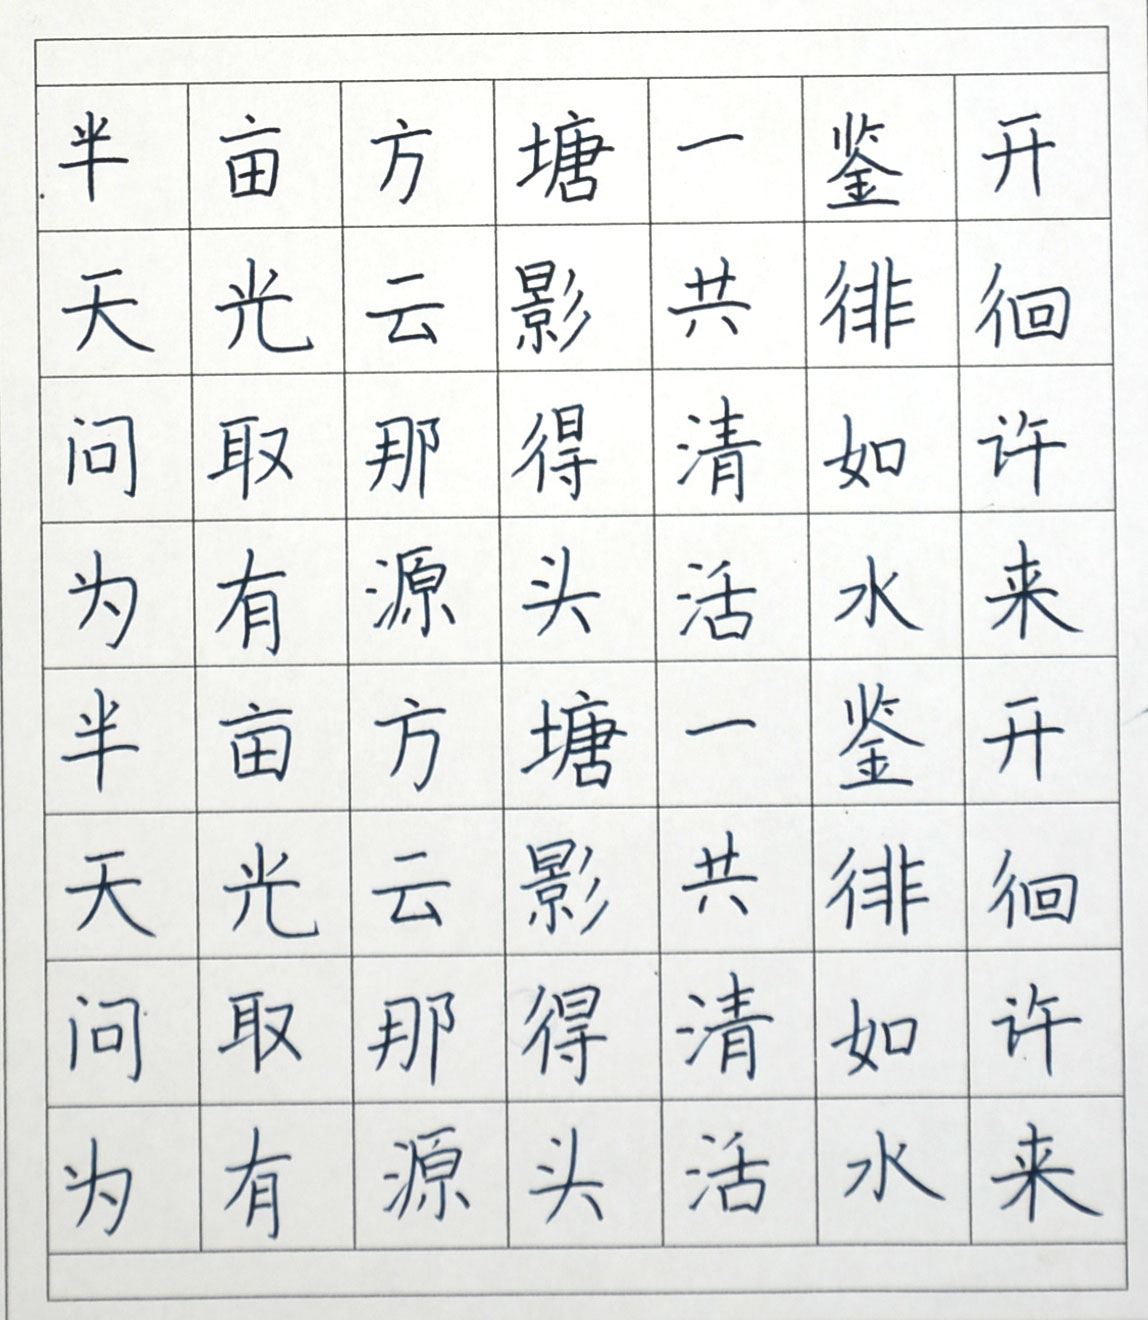 半亩方塘一鉴开
天光云影共徘徊
问取那得清如许
为有源头活水来
半亩方塘一鉴开
天光云影共徘徊
问取那得清如许
为有源头活水来